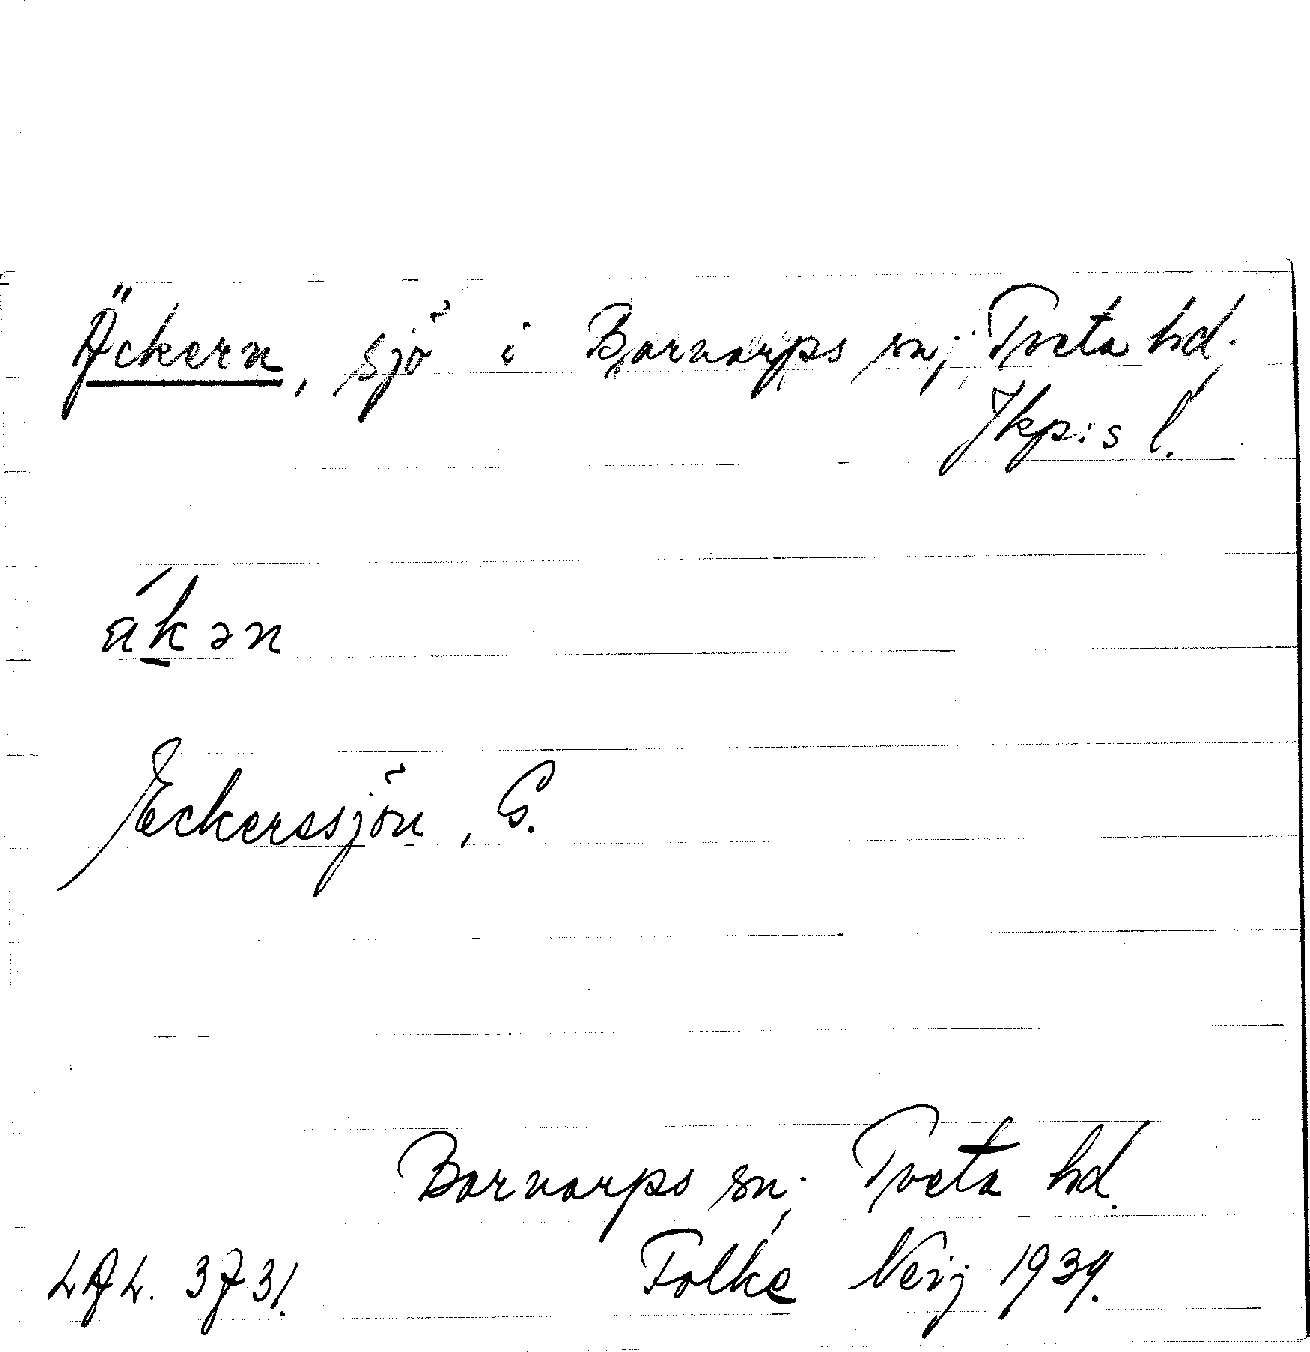 Äckern, sjö i Barnarps sn; Tveta hd.
Jkp:s l.
äkən
Eckerssjön, G.
Barnarps sn; Tveta hd.
Folke Neij 1939.